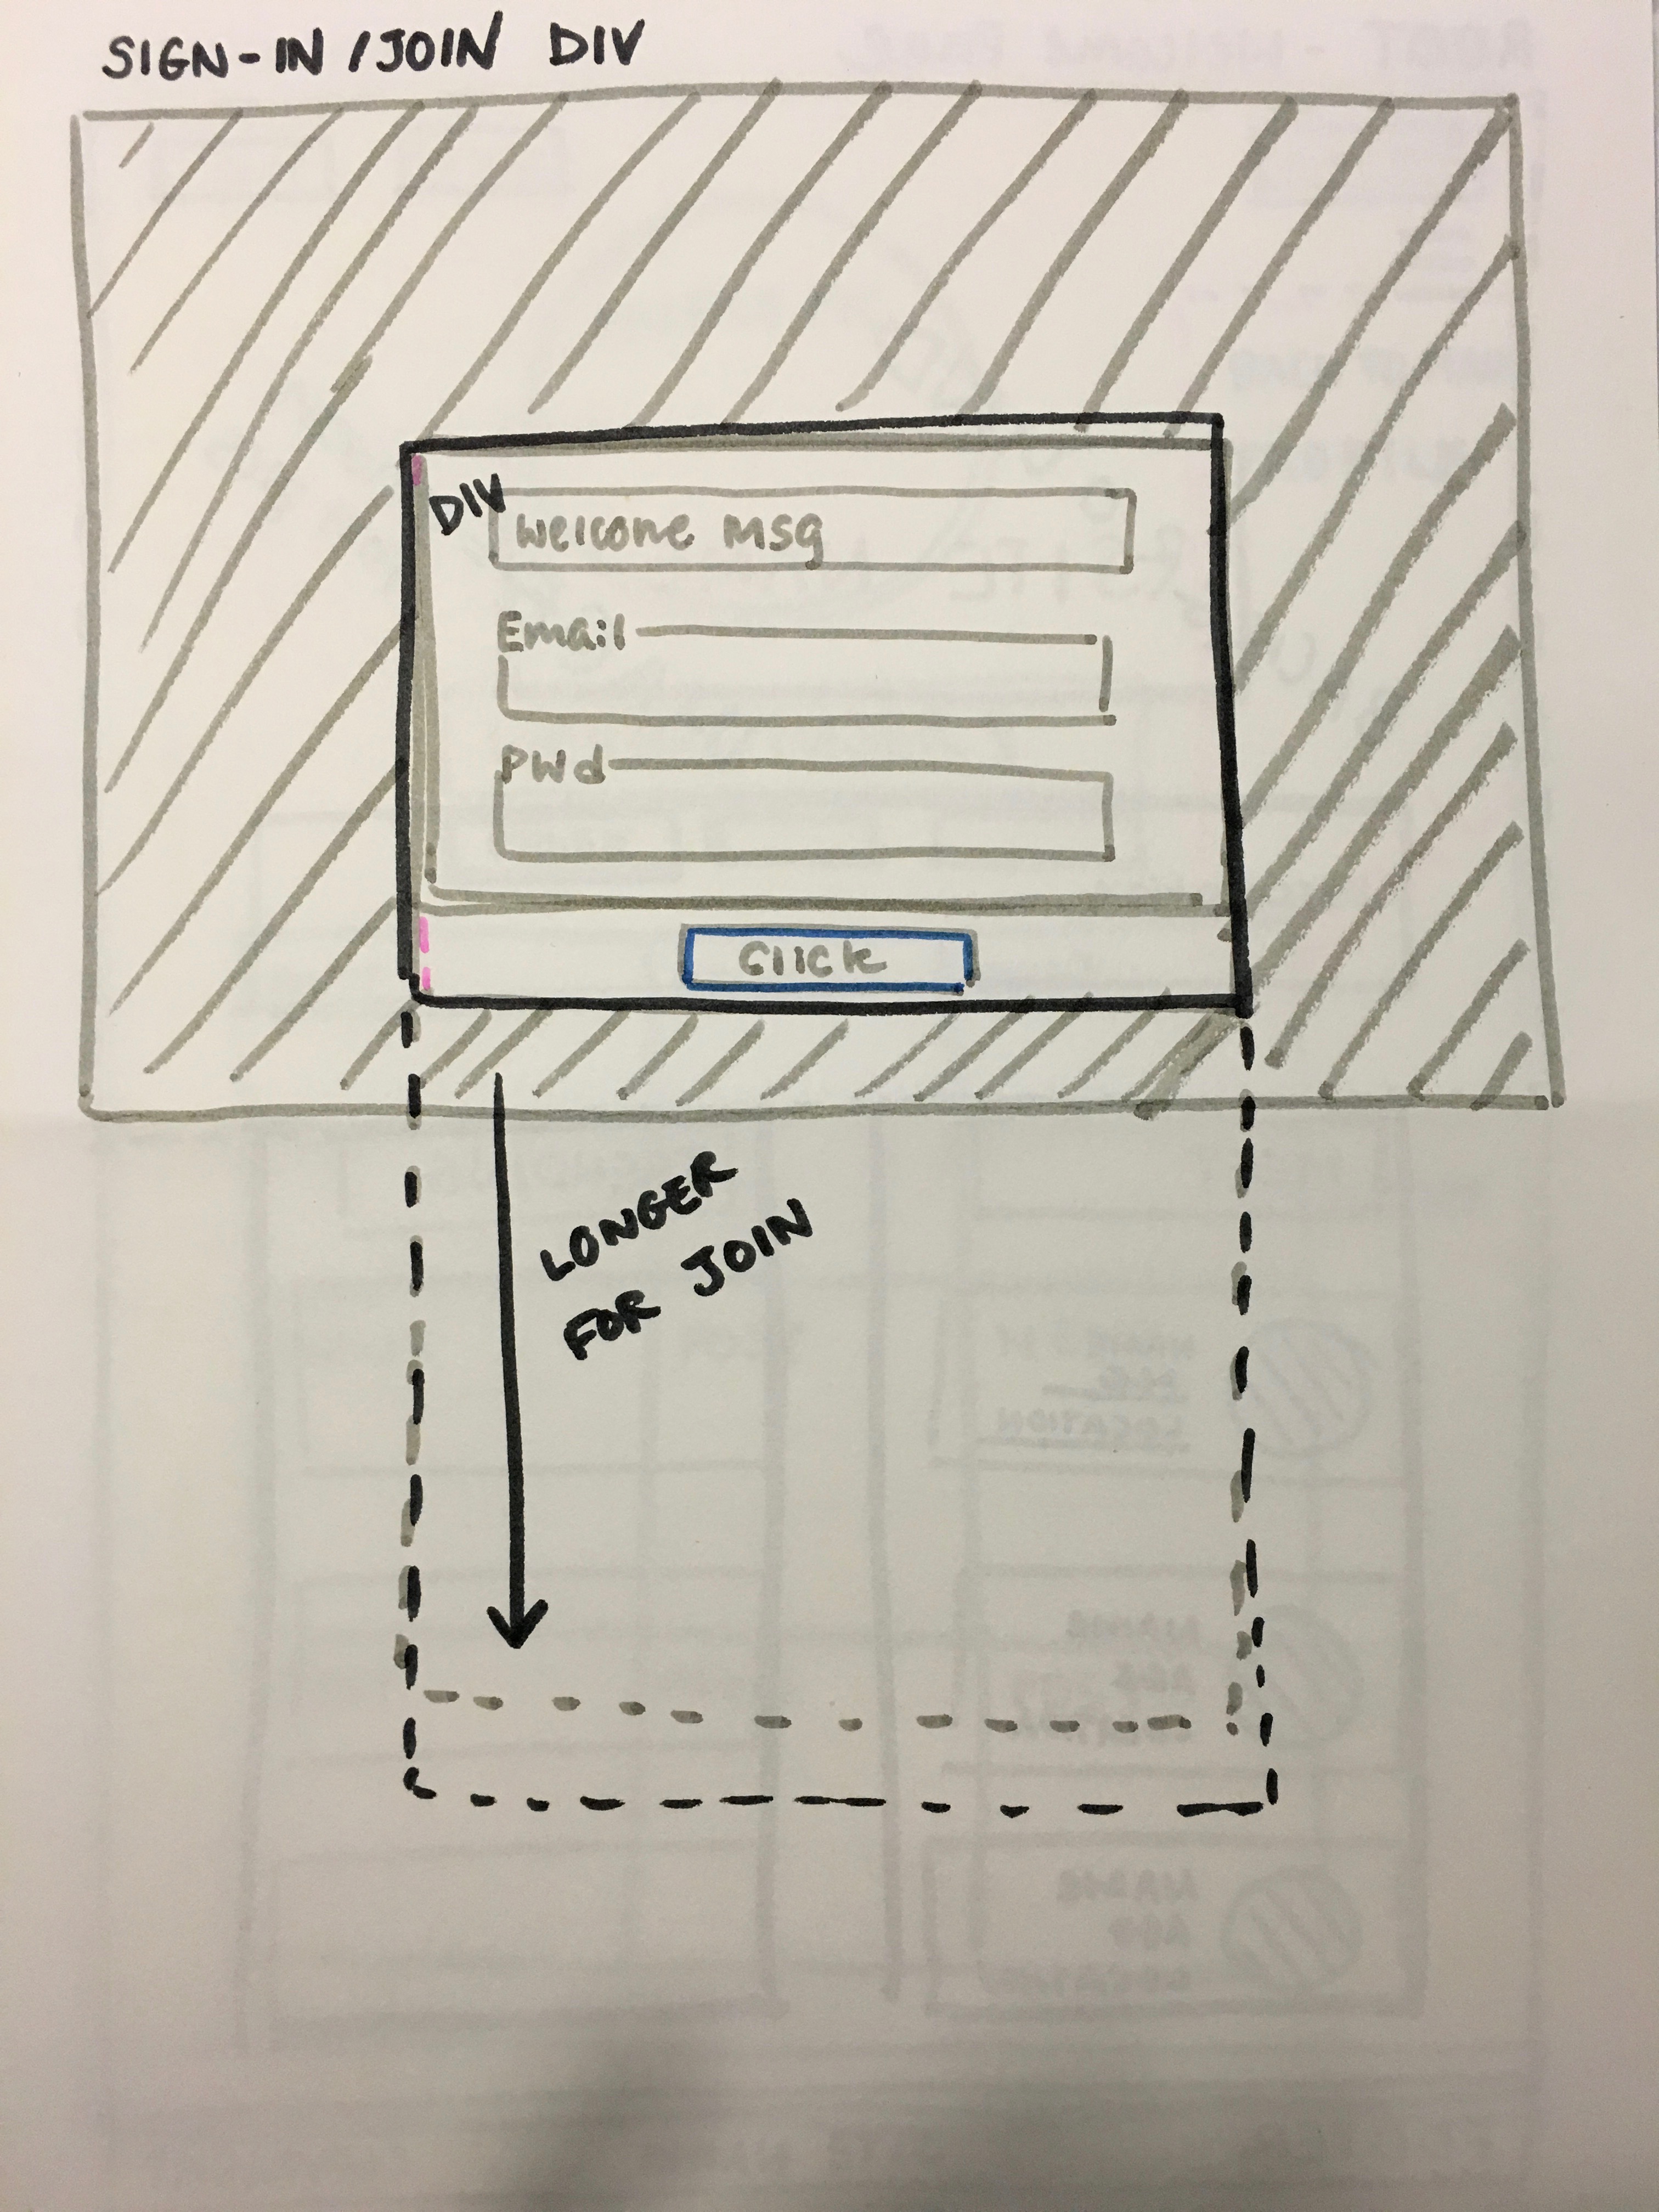 SIGN-IN / JOIN DIV
DIV
Welcome Msg
Email
PWd
Click
LONGER
FOR JOIN